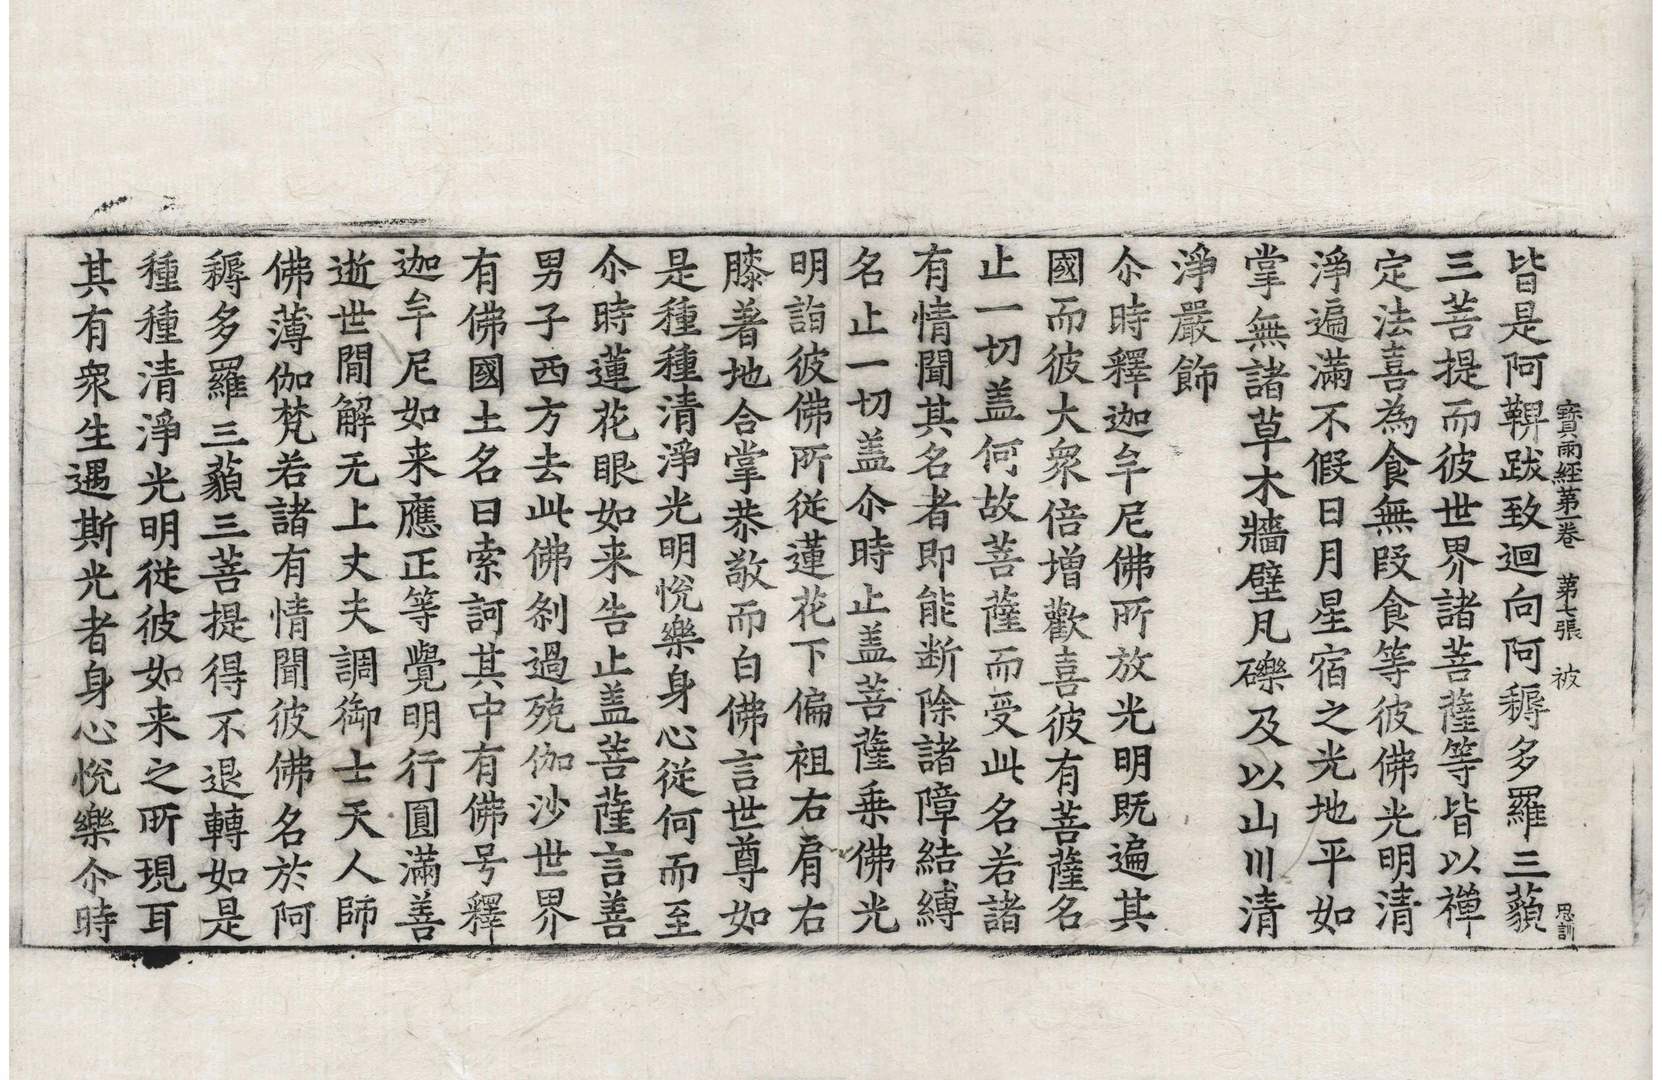 寶雨經第一卷　第七張　被
恩訓
皆是阿鞞跋致迴向阿耨多羅三藐
三菩提而彼世界諸菩薩等皆以禪
定法喜為食無叚食等彼佛光明清
淨遍滿不假日月星宿之光地平如
掌無諸草木牆壁凡礫及以山川清
淨嚴飾
尒時釋迦牟尼佛所放光明旣遍其
國而彼大衆倍增歡喜彼有菩薩名
止一切盖何故菩薩而受此名若諸
有情聞其名者即能断除諸障結縛
名止一切盖尒時止盖菩薩乗佛光
明詣彼佛所從蓮花下偏袒右肩右
膝著地合掌恭敬而白佛言世尊如
是種種清淨光明悅樂身心從何而至
尒時蓮花眼如来告止盖菩薩言善
男子西方去此佛刹過殑伽沙世界
有佛國土名曰索訶其中有佛号釋
迦牟尼如来應正等覺明行圓滿善
逝世間解无上丈夫調御士天人師
佛薄伽梵若諸有情聞彼佛名於阿
耨多羅三藐三菩提得不退轉如是
種種清淨光明從彼如来之所現耳
其有衆生遇斯光者身心悅樂尒時